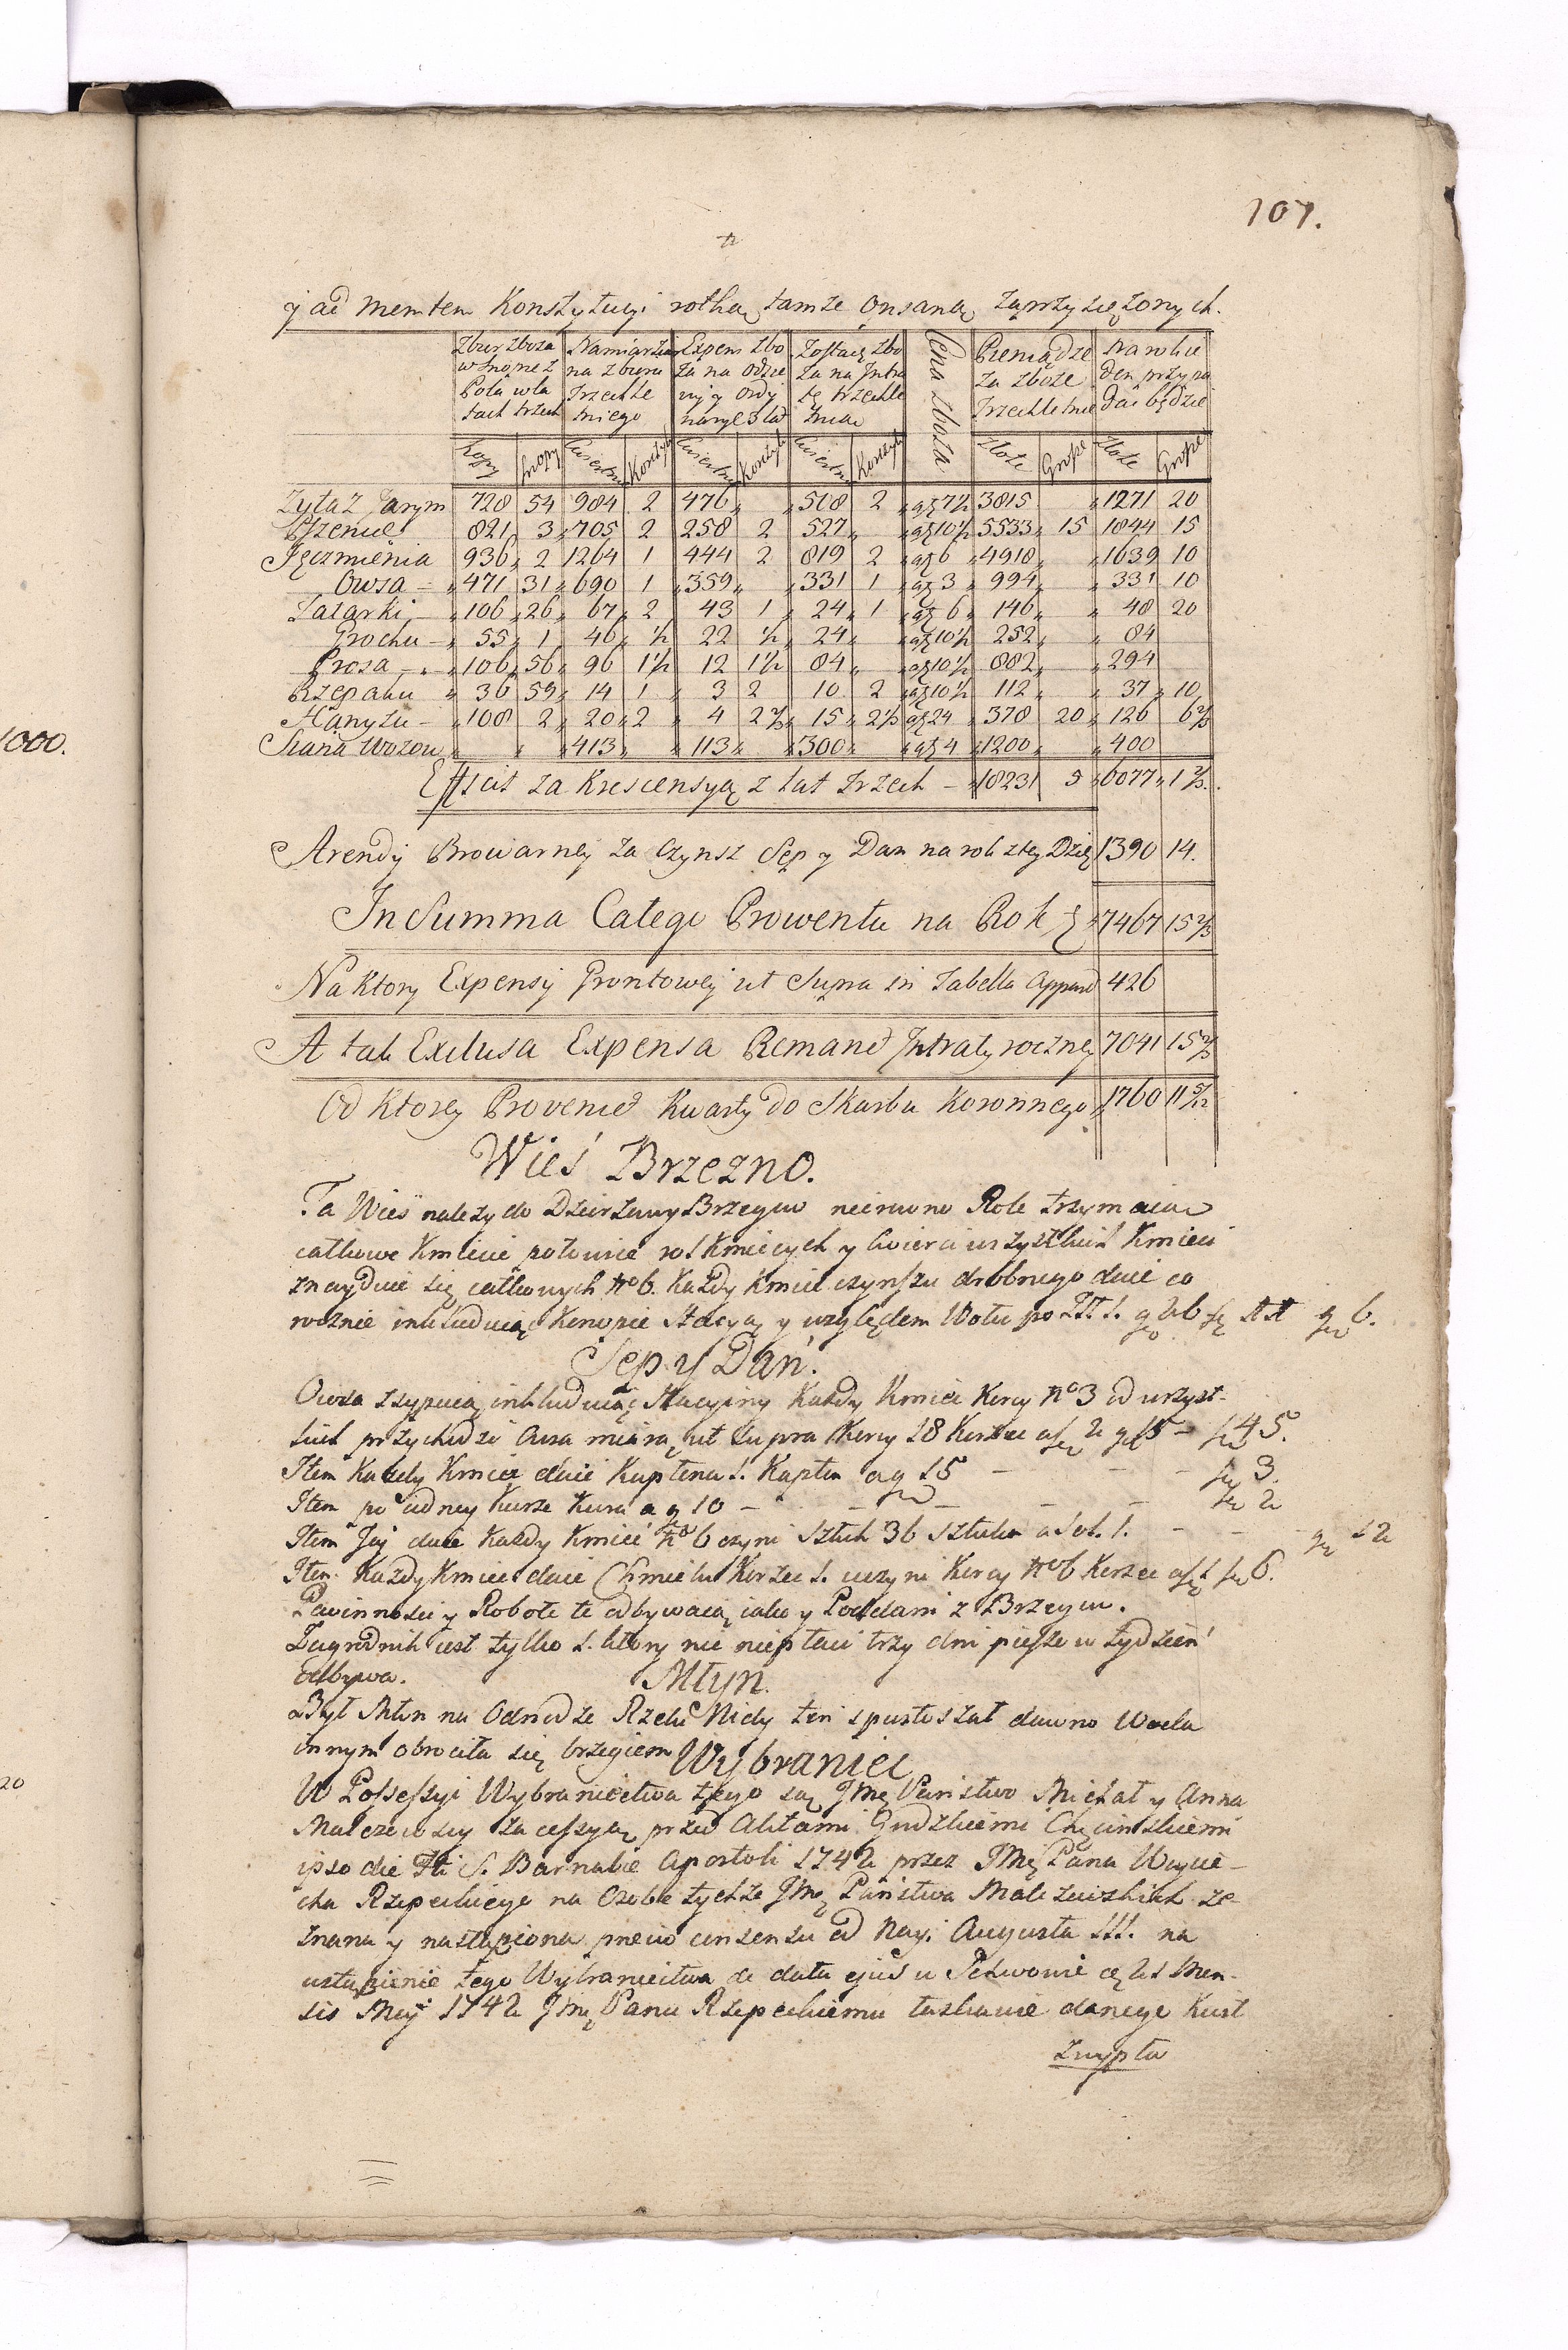 107.
y ad mentem Konstytucyi rothą tamże opisaną zaprzysiężonych.
Zbior zboża w snopie z Pola w latach trzech | Namiar ziar na z zbioru trzechle tniego | Expens zbo ża na odsie wy y ordy narye 3 lat | Zostaię zbo ża na Intra tę trzechle tnią | Cena zboża | Pieniądze za zboże Trzechletnie | Na rok ie den przypa dać będzie
Kopy | Snopy | Cwiertni | Korzyk | Cwiertni | Korzyk | Cwiertni | Korzyk | Złote | Grosze | Złote | Grosze
Zyta z Jarym 728 54 984 2 476 508 2 a 7½ 3815 1271 20
Pszenice 821 3 705 2 258 2 527 a 10½ 5533 15 1844 15
Jęczmienia 936 2 1264 1 444 2 819 2 a 6 4918 1639 10
Owsa 471 31 690 1 359 331 1 a 3 994 331 10
Tatarki 106 26 67 2 43 1 24 1 a 6 146 48 20
Grochu 55 1 46 ½ 22 ½ 24 a 10½ 252 84
Prosa 106 56 96 1½ 12 1½ 84 a 10½ 882 294
Rzepaku 36 59 14 1 3 2 10 2 a 10½ 112 37 10
Hanyżu 108 2 20 2 4 2⅔ 15 2⅓ a 24 378 20 126 6⅔
Siana Wozow 413 113 300 a 4 1200 400
Efficit za Krescensyą z lat trzech 18231 5 6077 1⅔.
Arendy Browarney za Czynsz Sep y Dan na rok z tey Dzię 1390 14.
In Summa Całego Prowentu na Rok 7467 15⅔
Na ktory Expensy Gruntowey ut Supra in Tabella 426
A tak Exclusa Expensa Remanet Intraty roczney 7041 15⅔
Od ktorey Provenit Kwarty do Skarbu Koronnego 1760 11 5/12
Wieś Brzezno.
Ta Wieś należy do Dzierżawy Brzegow nierowno Role trzymaiąc
całkowe Kmiecie, połowice rol Kmiecych y Cwierci wszystkich Kmieci
znayduie się całkowych No 6. Każdy Kmiec czynszu drobnego daie co
rocznie inkluduiąc Konopie Stacyą y względem Wołu po 6.
Sep y Dań.
Owsa zsypuią inkluduiąc Stacyiny Każdy Kmieć Korcy No 3 od wszyst-
kich przychodzi Owsa miarą ut supra Korcy 18 Korzec a 2 15 – 45.
Item Każdy Kmieć daie Kapłona 1. Kapłon a 15 – – – 3.
Item po iedney Kurze Kura a 10 – – – – – 2
Item Jay daie Każdy Kmieć No 6 czyni sztuk 36 sztuka a Sol. 1. – – – 12
Item Każdy Kmiec daie Chmielu Korzec 1. uczyni Korcy No 6 Korzec a 1 6.
Powinności y Robote te odbywaią iako y Poddani z Brzegow.
Zagrodnik iest tylko 1. ktory nic niepłaci trzy dni piesze w tydzień
odbywa.
Młyn.
Był Młyn na Odnodze Rzeki Nidy ten spustoszał dawno Woda
innym obrociła się brzegiem
Wybraniec
W Possessyi Wybraniectwa tego są Jmę Państwo Michał y Anna
Malczewscy za cessyą przed Aktami Grodzkiemi Chęcinskiemi
ipso die Fti S. Barnabæ Apostoli 1742 przez JMę Pana Woycie-
cha Rzepeckiego na Osobe tychże Jmę Państwa Malczewskich ze-
znana y nastąpiona previo consensu od Nayi. Augusta III. na
ustąpienie tego Wybraniectwa de data eius w 21 Men-
sis Maji 1742 Jmę Panu Rzepeckiemu łaskawie danego Kost
1000.
20